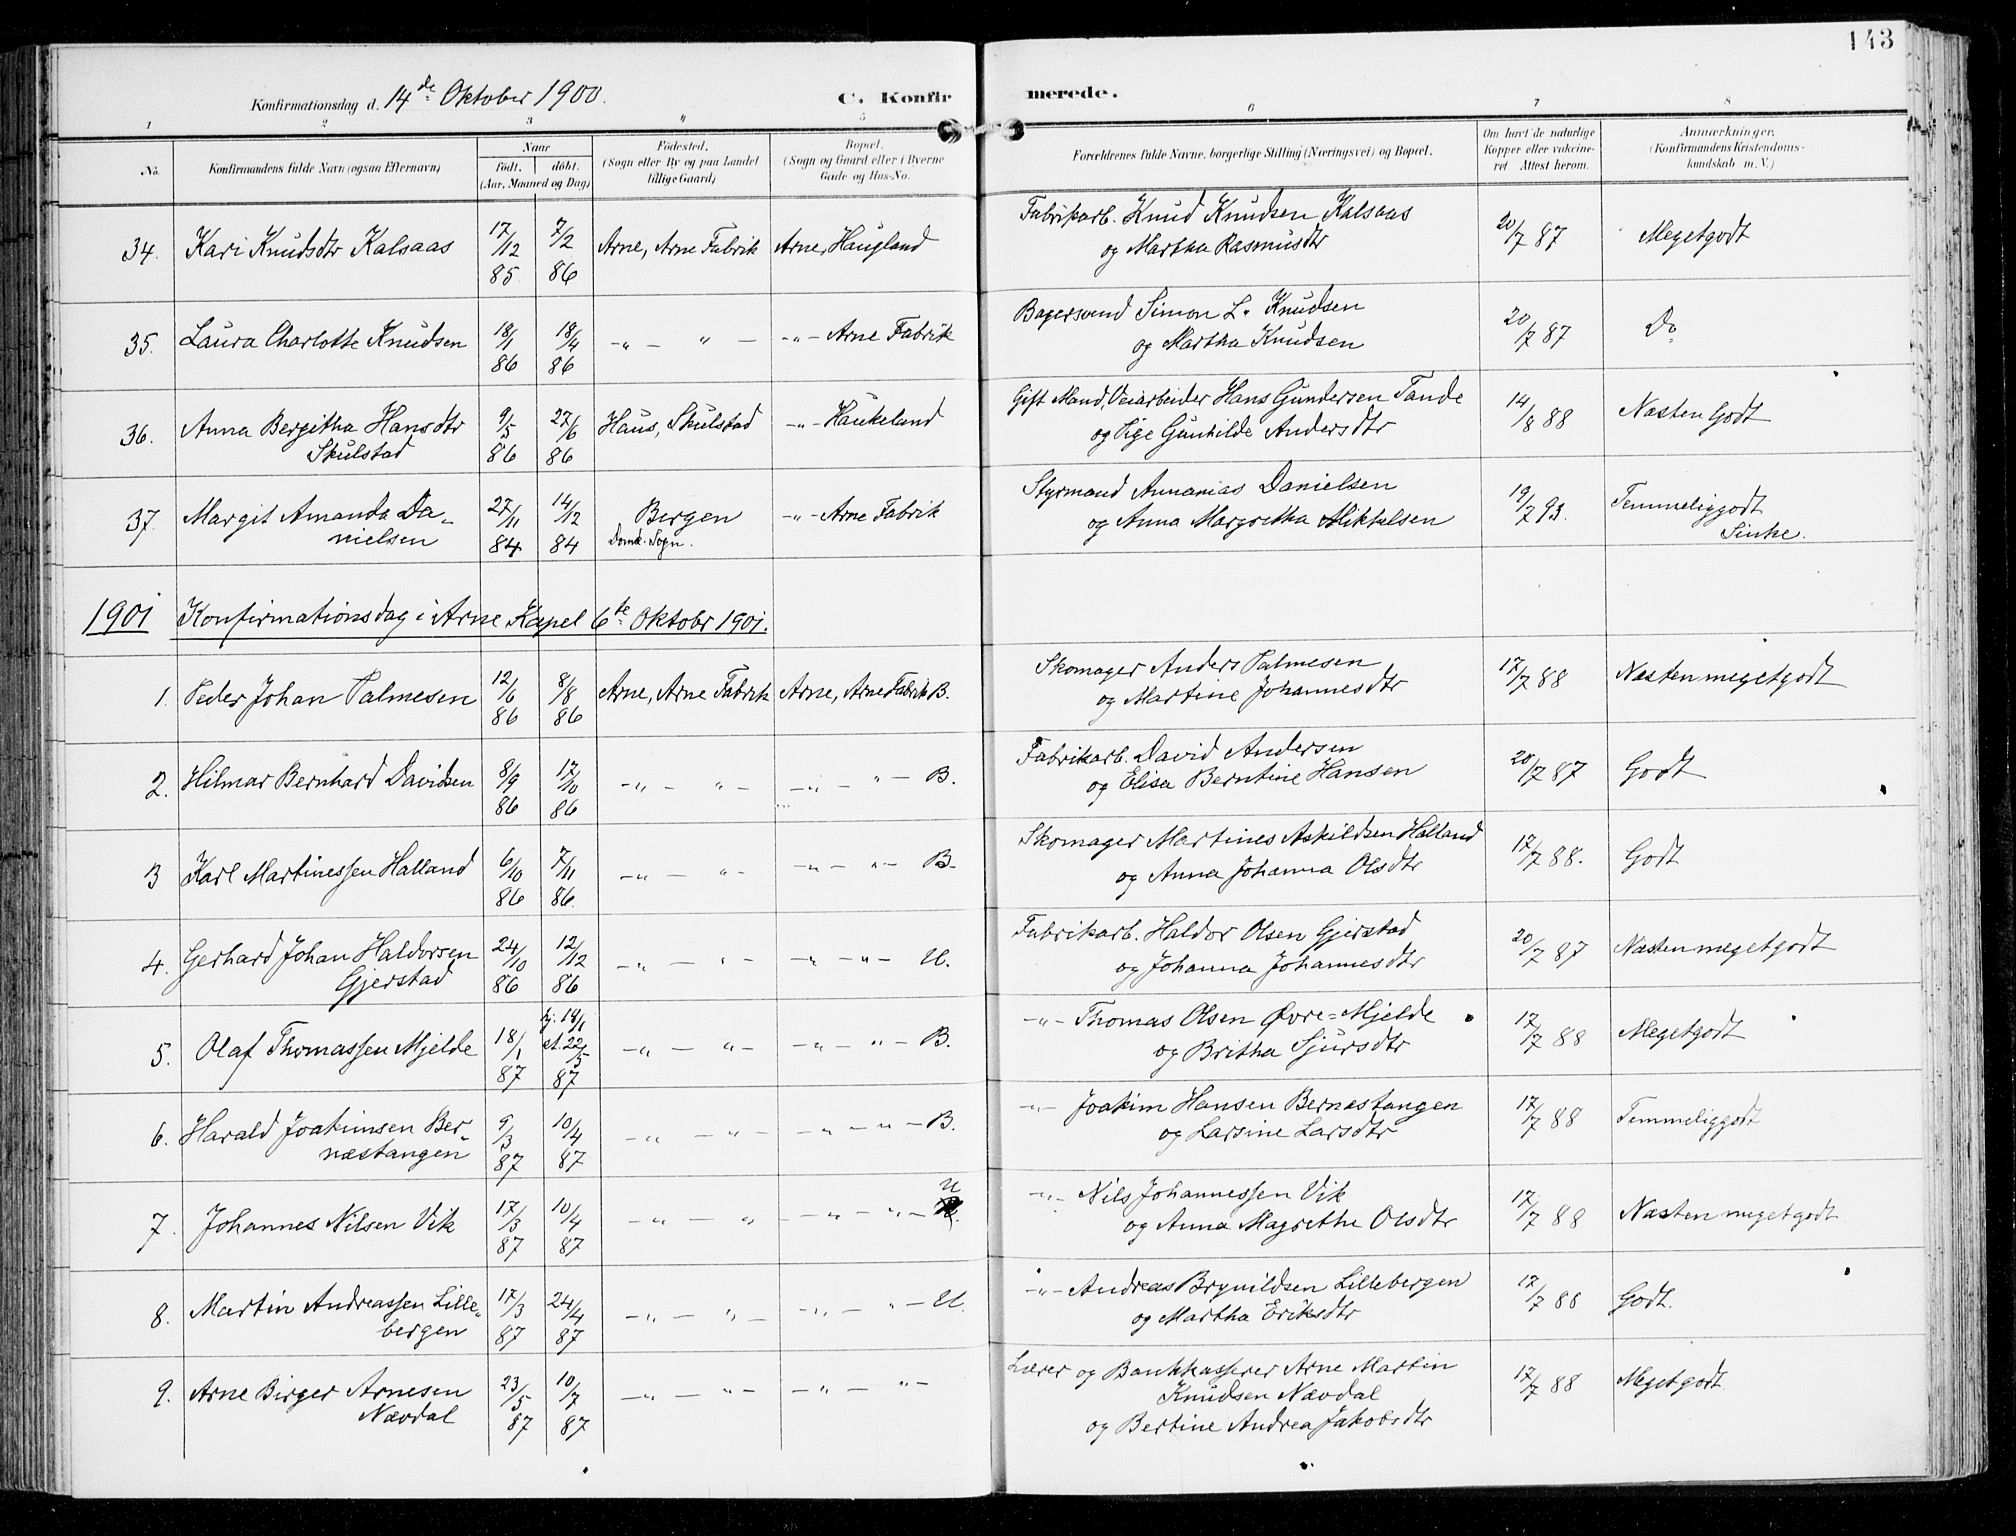 143
Konfirmationsdag d. 14de Oktober 1900.
C. Konfirmerede.
1 2 3 4 5 6 7 8
No. Konfirmandens fulde Navn (ogsaa Efternavn) Naar født, døbt. (Aar, Maaned og Dag) Fødested. (Sogn eller By og paa Landet tillige Gaard) Bopæl. (Sogn og Gaard eller i Byerne Gade og Hus-No. Forældrenes fulde Navne, borgerlige Stilling (Næringsvei) og Bopæl. Om havt de naturlige Kopper eller vakcineret. Attest herom. Anmærkninger. (Konfirmandens Kristendomskundskab m. V.)
34. Kari Knudsdtr Kalsaas 17/12 85 7/2 86 Arne, Arne Fabrik Arne, Haugland Fabrikarb. Knud Knudsen Kalsaas 20/7 87 Megetgodt
og Martha Rasmusdtr
35. Laura Charlotte Knudsen 18/1 86 18/4 86 -"- " - -"- Arne Fabrik Bagersvend Simon L. Knudsen 20/7 87 Do
og Martha Knudsen
36. Anna Bergitha Hansdtr 9/5 86 27/6 86 Haus, Skulstad -"- Haukeland Gift Mand, Veiarbeider Hans Gundersen Tande 14/8 88 Næsten Godt
Skulstad og Pige Gunhilde Andersdtr
37. Margit Amanda Da- 27/11 84 14/12 84 Bergen -"- Arne Fabrik Styrmand Annanias Danielsen 19/7 93. Temmeliggodt
nielsen Domk. Sogn. og Anna Margretha Mikkelsen Sinke.
1901 Konfirmationsdag i Arne Kapel 6te Oktobr 1901.
1. Peder Johan Palmesen 12/6 86 8/8 86 Arne, Arne Fabrik Arne, Arne Fabrik B. Skomager Anders Palmesen 17/7 88 Næsten megetgodt
og Martine Johannesdtr
2. Hilmar Bernhard Davidsen 8/9 86 17/10 86 -"- "- -"- "- B. Fabrikarb. David Andersen 20/7 87 Godt
og Elisa Berntine Hansen
3 Karl Martinessen Halland 6/10 86 7/11 86. -"- "- -"- "- B. Skomager Martines Askildsen Halland 17/7 88. Godt
og Anna Johanna Olsdtr
4. Gerhard Johan Haldorsen 24/10 86 12/12 86 -"- "- -"- "- U. Fabrikarb. Haldor Olsen Gjerstad 20/7 87 Næsten megetgodt
Gjerstad og Johanna Johannesdtr
5. Olaf Thomassen Mjelde 18/1 87 hj. 18/1 st. 22/5 87 -"- "- -"- "- B. -"- Thomas Olsen Øvre=Mjelde 17/7 88 Megetgodt
og Britha Sjursdtr
6. Harald Joakimsen Ber- 9/3 87 10/4 87 -"- "- -"- "- B. -"- Joakim Hansen Bernæstangen 17/7 88 Temmeliggodt
næstangen og Larsine Larsdtr
7. Johannes Nilsen Vik 17/3 87 10/4 87 -"- " -"- "- U -"- Nils Johannessen Vik 17/7 88 Næsten megetgodt
og Anna Magrethe Olsdtr
8. Martin Andreassen Lille- 17/3 87 24/4 87 -"- " -"- "- U. -"- Andreas Brynildsen Lillebergen 17/7 88 Godt.
bergen og Martha Eriksdtr
9. Arne Birger Arnesen 23/5 87 10/7 87 -"- "- -"- "- Lærer og Bankkasserer Arne Martin 17/7 88 Megetgodt
Nævdal Knudsen Nævdal
og Bertine Andrea Jakobsdtr